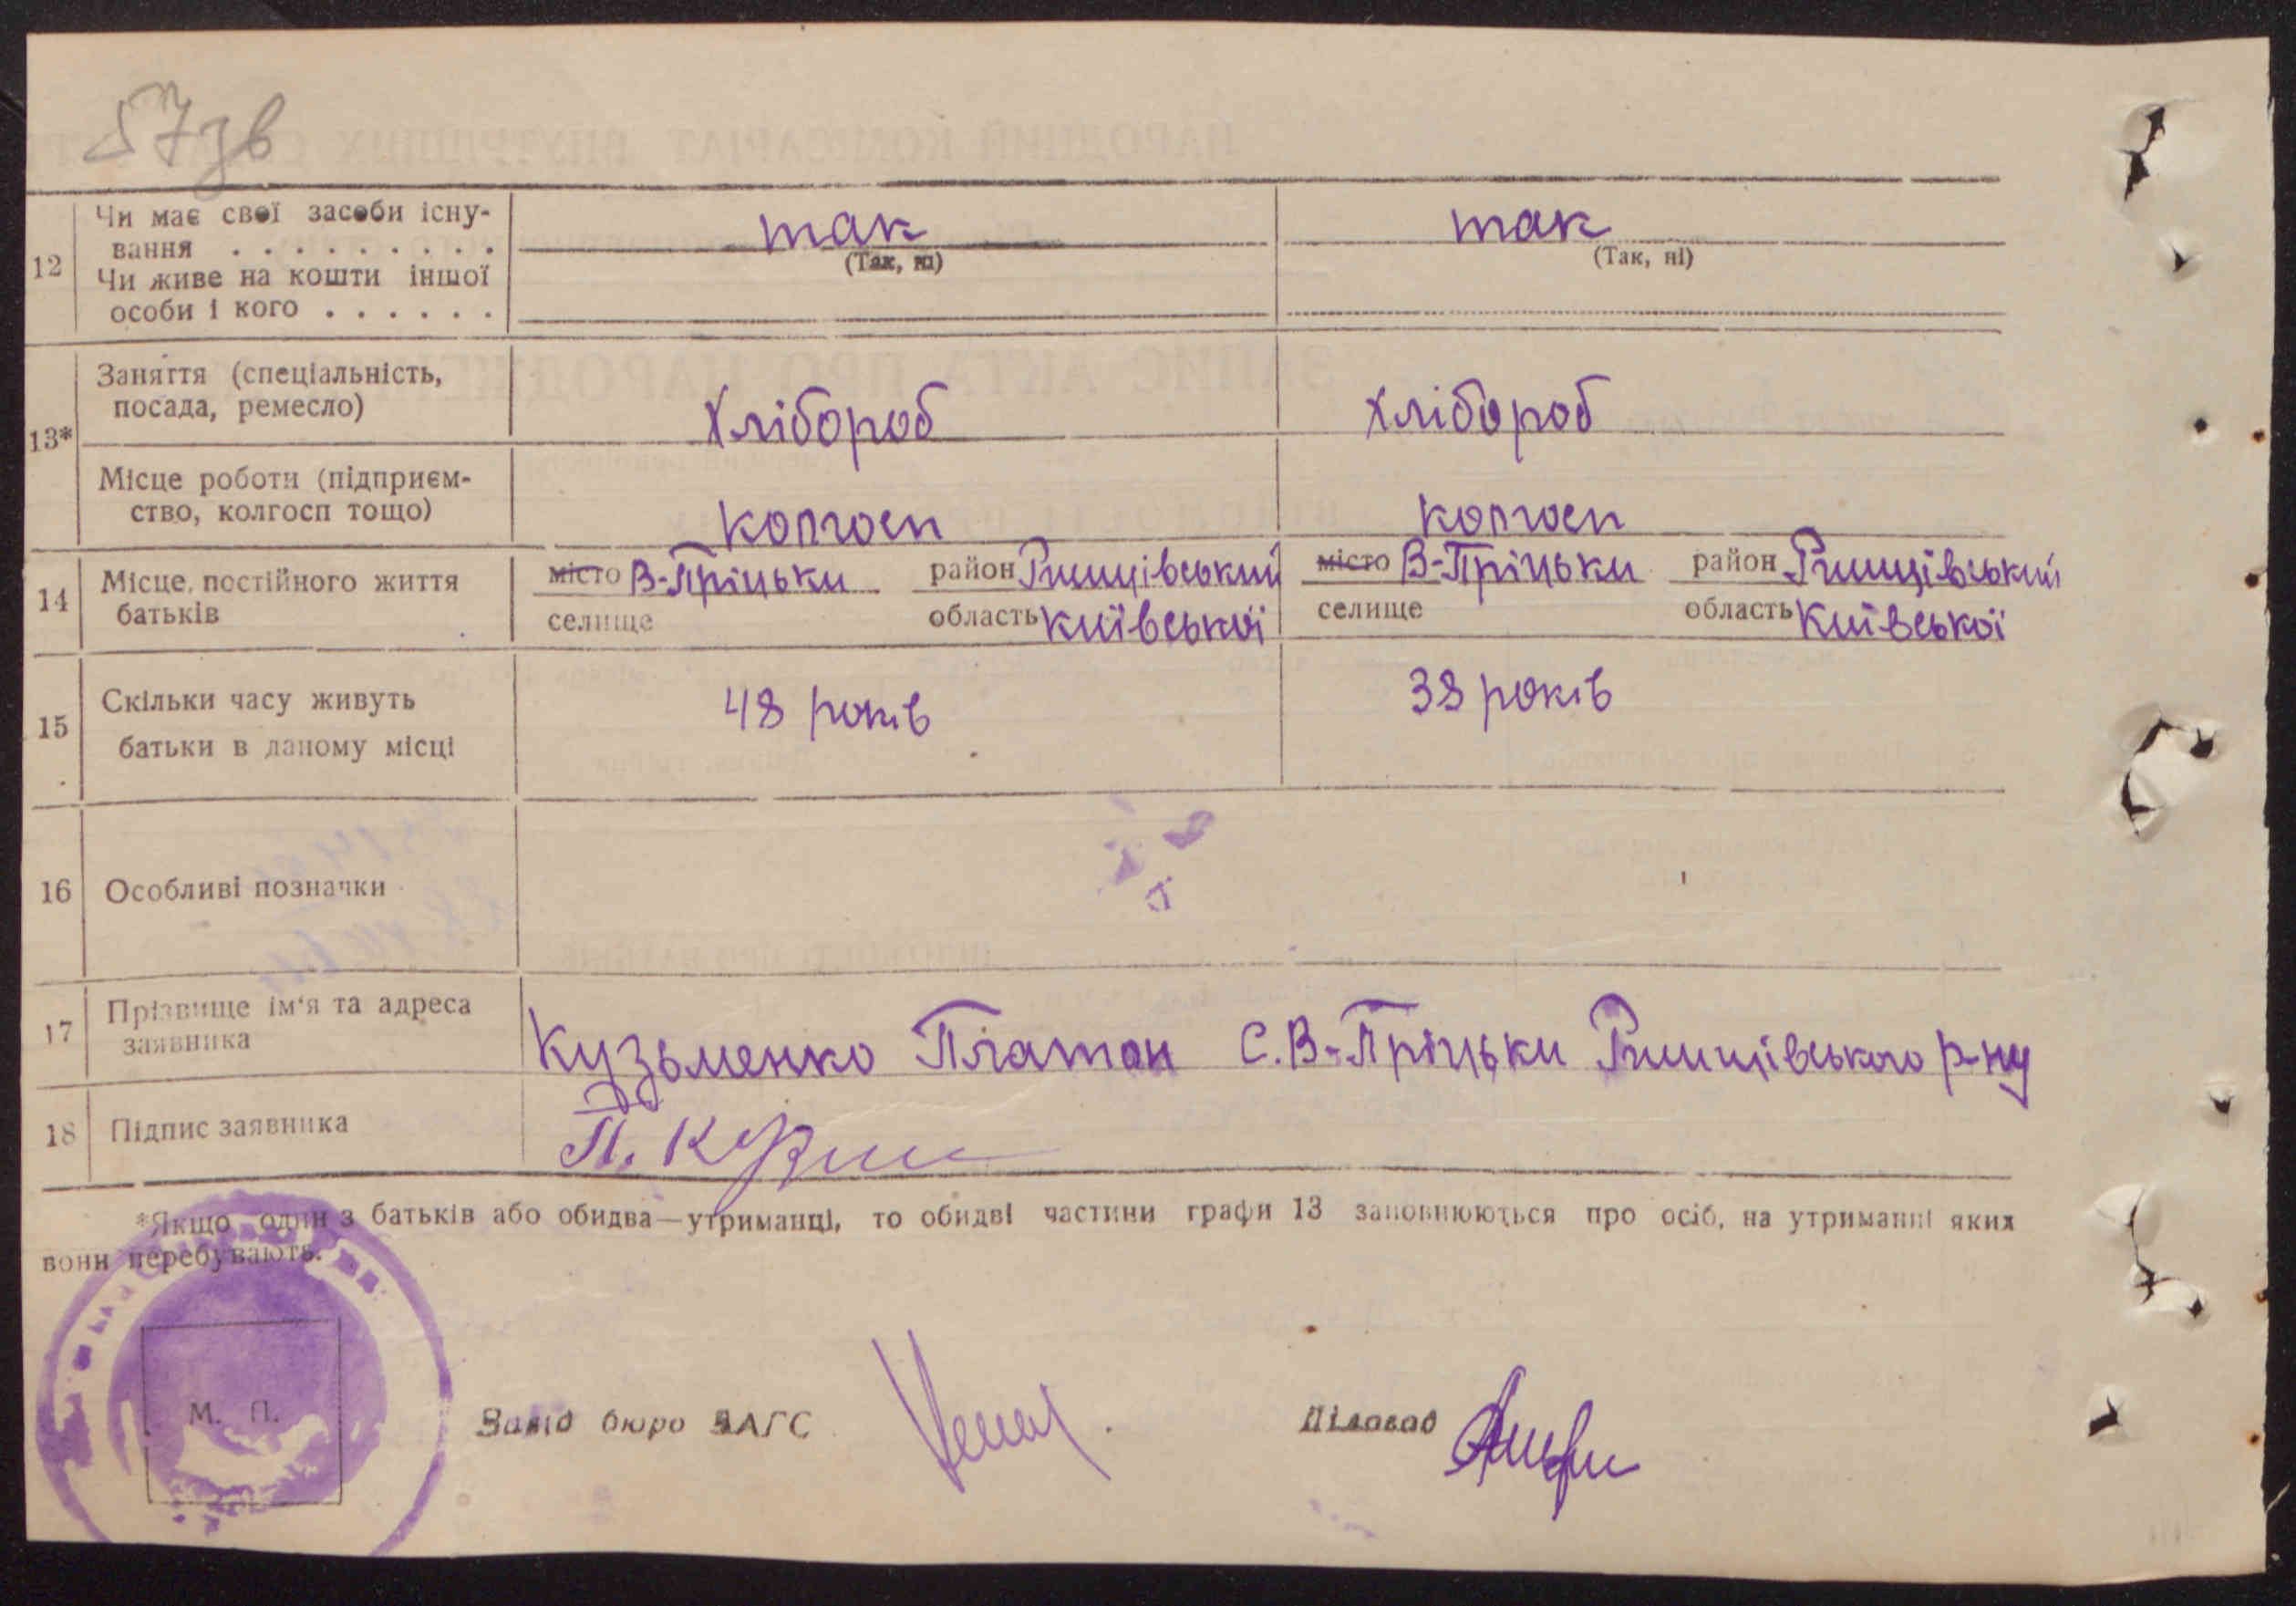 57зв
12 Чи має свої засоби існу-
вання . . . . . . . . . так так
(Так, ні) (Так, ні)
Чи живе на кошти іншої
особи і кого . . . . . .
13* Заняття (спеціальність,
посада, ремесло) Хлібороб Хлібороб
Місце роботи (підприєм-
ство, колгосп тощо) колгосп колгосп
14 Місце постійного життя
батьків
місто В-Пріцьки район Ржищівський місто В-Пріцьки район Ржищівський
селище область Київської селище область Київської
15 Скільки часу живуть
батьки в даному місці 48 років 38 років
16 Особливі позначки
17 Прізвище ім'я та адреса
заявника Кузьменко Платон С. В-Пріцьки Ржищівського р-ну
18 Підпис заявника П. Кузьм
*Якщо один з батьків або обидва—утриманці, то обидві частини графи 13 заповнюються про осіб, на утриманні яких
вони перебувають.
М. П.
Завід бюро ЗАГС Діловод